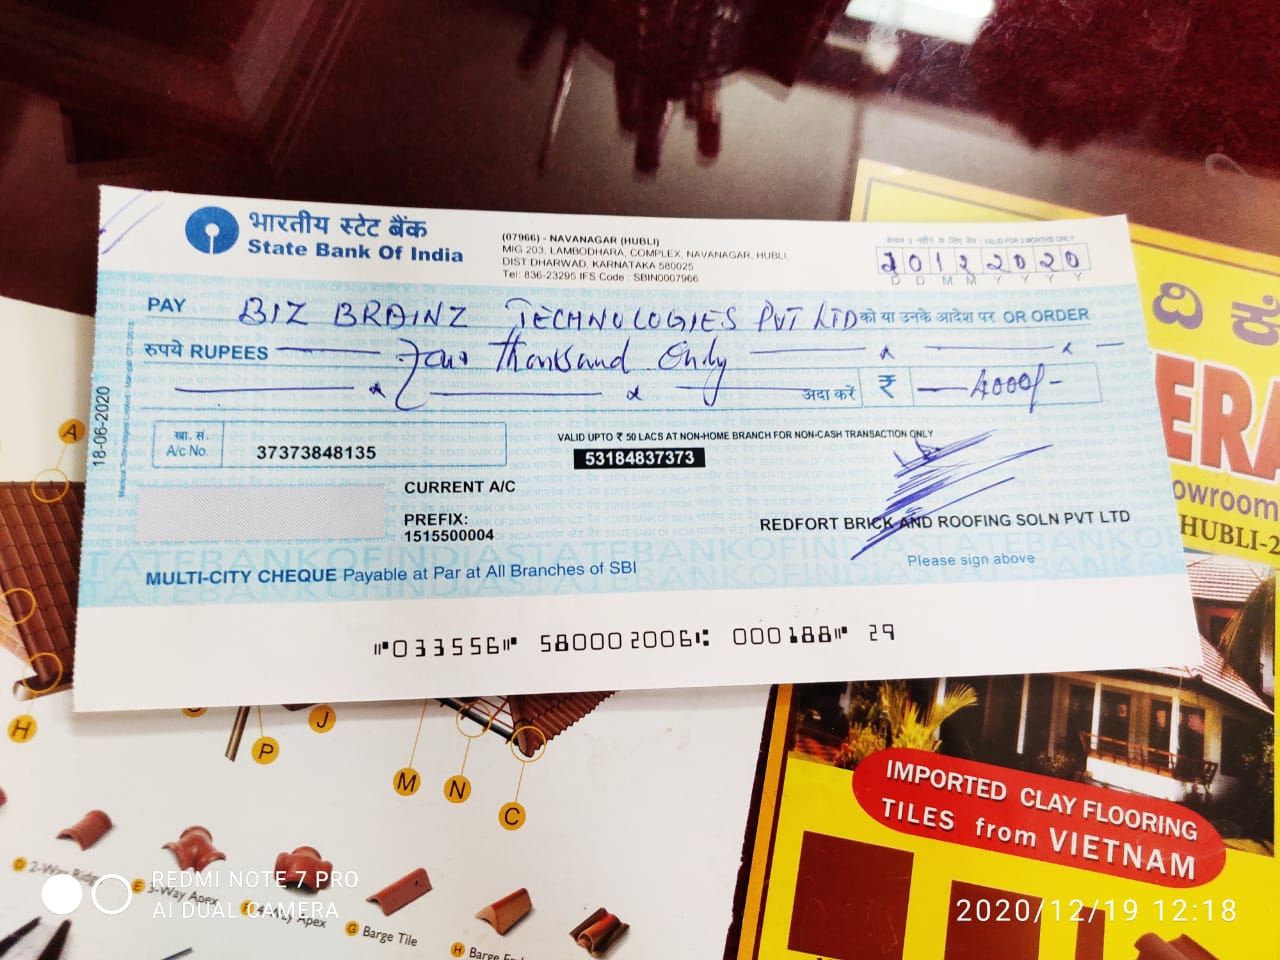 भारतीय स्टेट बैंक
State Bank Of India
(07966) - NAVANAGAR (HUBLI)
MIG 203, LAMBODHARA, COMPLEX, NAVANAGAR, HUBLI,
DIST:DHARWAD, KARNATAKA 580025
Tel: 836-23295 IFS Code : SBIN0007966
VALID FOR 3 MONTHS ONLY
01122020
D D M M Y Y Y Y
PAY BIZ BRAINZ TECHNOLOGIES PVT LTD को या उनके आदेश पर OR ORDER
रुपये RUPEES Four Thousand Only
अदा करें ₹ 4000/-
18-06-2020
खा. सं.
A/c No. 37373848135
VALID UPTO ₹ 50 LACS AT NON-HOME BRANCH FOR NON-CASH TRANSACTION ONLY
53184837373
CURRENT A/C
PREFIX:
1515500004
REDFORT BRICK AND ROOFING SOLN PVT LTD
Please sign above
MULTI-CITY CHEQUE Payable at Par at All Branches of SBI
⑈033556⑈ 580002006⑆ 000188⑈ 29
ದಿ ಕೆ
ERA
owroom
HUBLI-2
A
H
P
J
M
N
C
D 2-Way Ridge
E 3-Way Apex
F 4-Way Apex
G Barge Tile
H Barge
IMPORTED CLAY FLOORING
TILES from VIETNAM
REDMI NOTE 7 PRO
AI DUAL CAMERA
2020/12/19 12:18